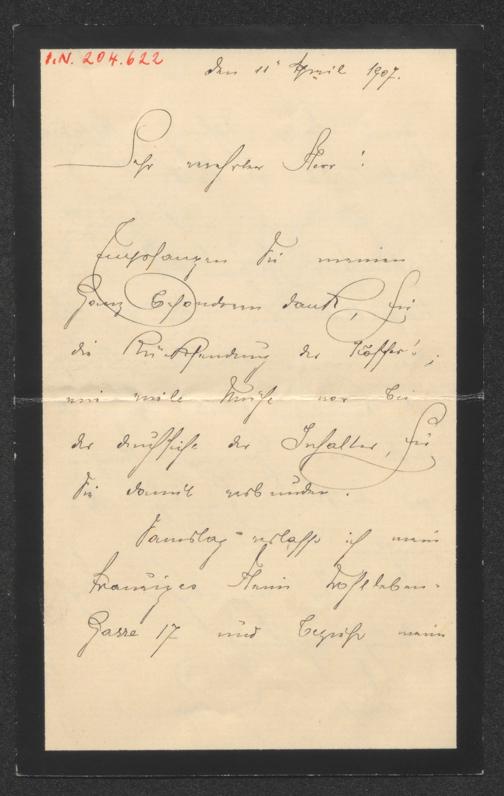 I.N. 204.622
den 11t April 1907.
Sehr verehrter Herr!
Empfangen Sie meinen
Ganz besonderen Dank, für
die Rücksendung der Koffer's,
wie viele Mühe war bei
der durchsicht der Inhalter, für
Sie damit verbunden.
Samstag verlasse ich mein
trauriges Heim Wohlleben-
Gasse 17 und beziehe mein